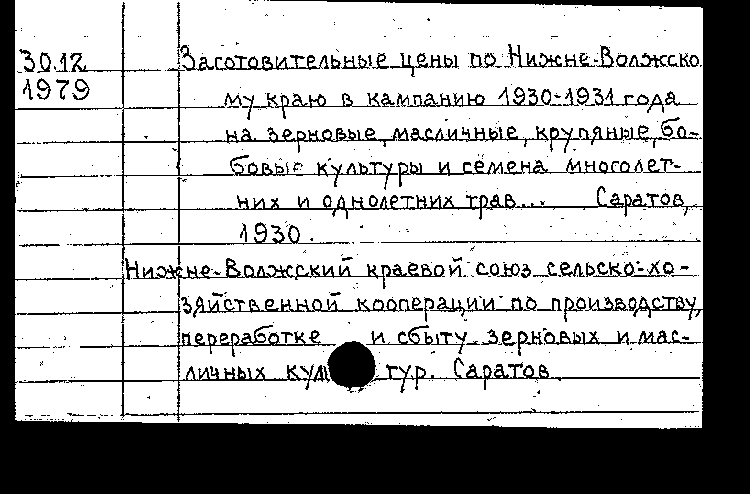 30.12
1979
Заготовительные цены по Нижне-Волжско
му краю в кампанию 1930-1931 года
на зерновые, масличные, крупяные, бо-
бовые культуры и семена многолет-
них и однолетних трав... Саратов,
1930.
Нижне-Волжский краевой союз сельско-хо-
зяйственной кооперации по производству,
переработке и сбыту зерновых и мас-
личных культур. Саратов.